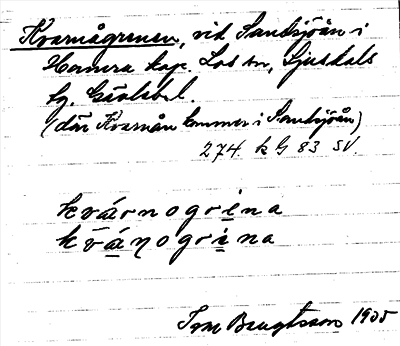 Kvarnågrenen, vid Sandsjöån i
Hamra kap. Los sn, Ljusdals
fg. Gävlebl.
(där Kvarnån kommer i Sandsjöån)
274. k G 83 SV.
kvárnogrina
kvánogrina
Tom Bengtsson 1935